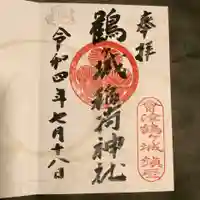 奉拝
會津鶴ヶ城
鶴ヶ城稲荷神社
令和四年七月十八日